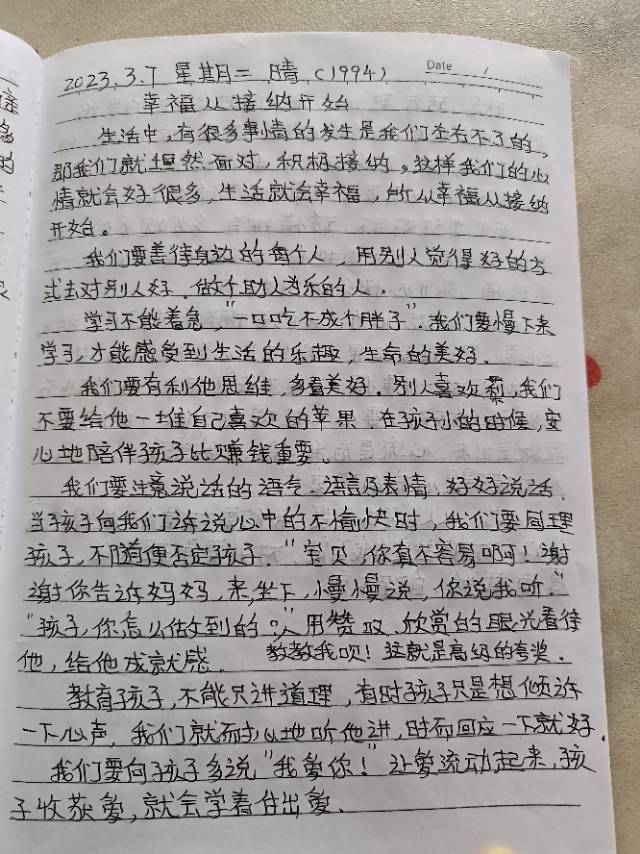 Date /
2023.3.7 星期二 晴（1994）
幸福从接纳开始
生活中，有很多事情的发生是我们左右不了的，
那我们就坦然面对，积极接纳。这样我们的心
情就会好很多，生活就会幸福，所以幸福从接纳
开始。
我们要善待身边的每个人，用别人觉得好的方
式去对别人好，做个助人为乐的人.
学习不能着急，"一口吃不成个胖子"。我们要慢下来
学习，才能感受到生活的乐趣，生命的美好.
我们要有利他思维，多看美好.别人喜欢梨，我们
不要给他一堆自己喜欢的苹果.在孩子小的时候，安
心地陪伴孩子比赚钱重要。
我们要注意说话的语气、语言及表情，好好说话.
当孩子向我们诉说心中的不愉快时，我们要同理
孩子，不随便否定孩子."宝贝，你真不容易啊！谢
谢你告诉妈妈，来，坐下，慢慢说，你说我听."
"孩子，你怎么做到的？"用赞叹、欣赏的眼光看待
他，给他成就感. 教教我呗！这就是高级的夸奖.
教育孩子，不能只讲道理，有时孩子只是想倾诉
一下心声，我们就耐心地听他讲，时而回应一下就好.
我们要向孩子多说"我爱你！"让爱流动起来，孩
子收获爱，就会学着付出爱.